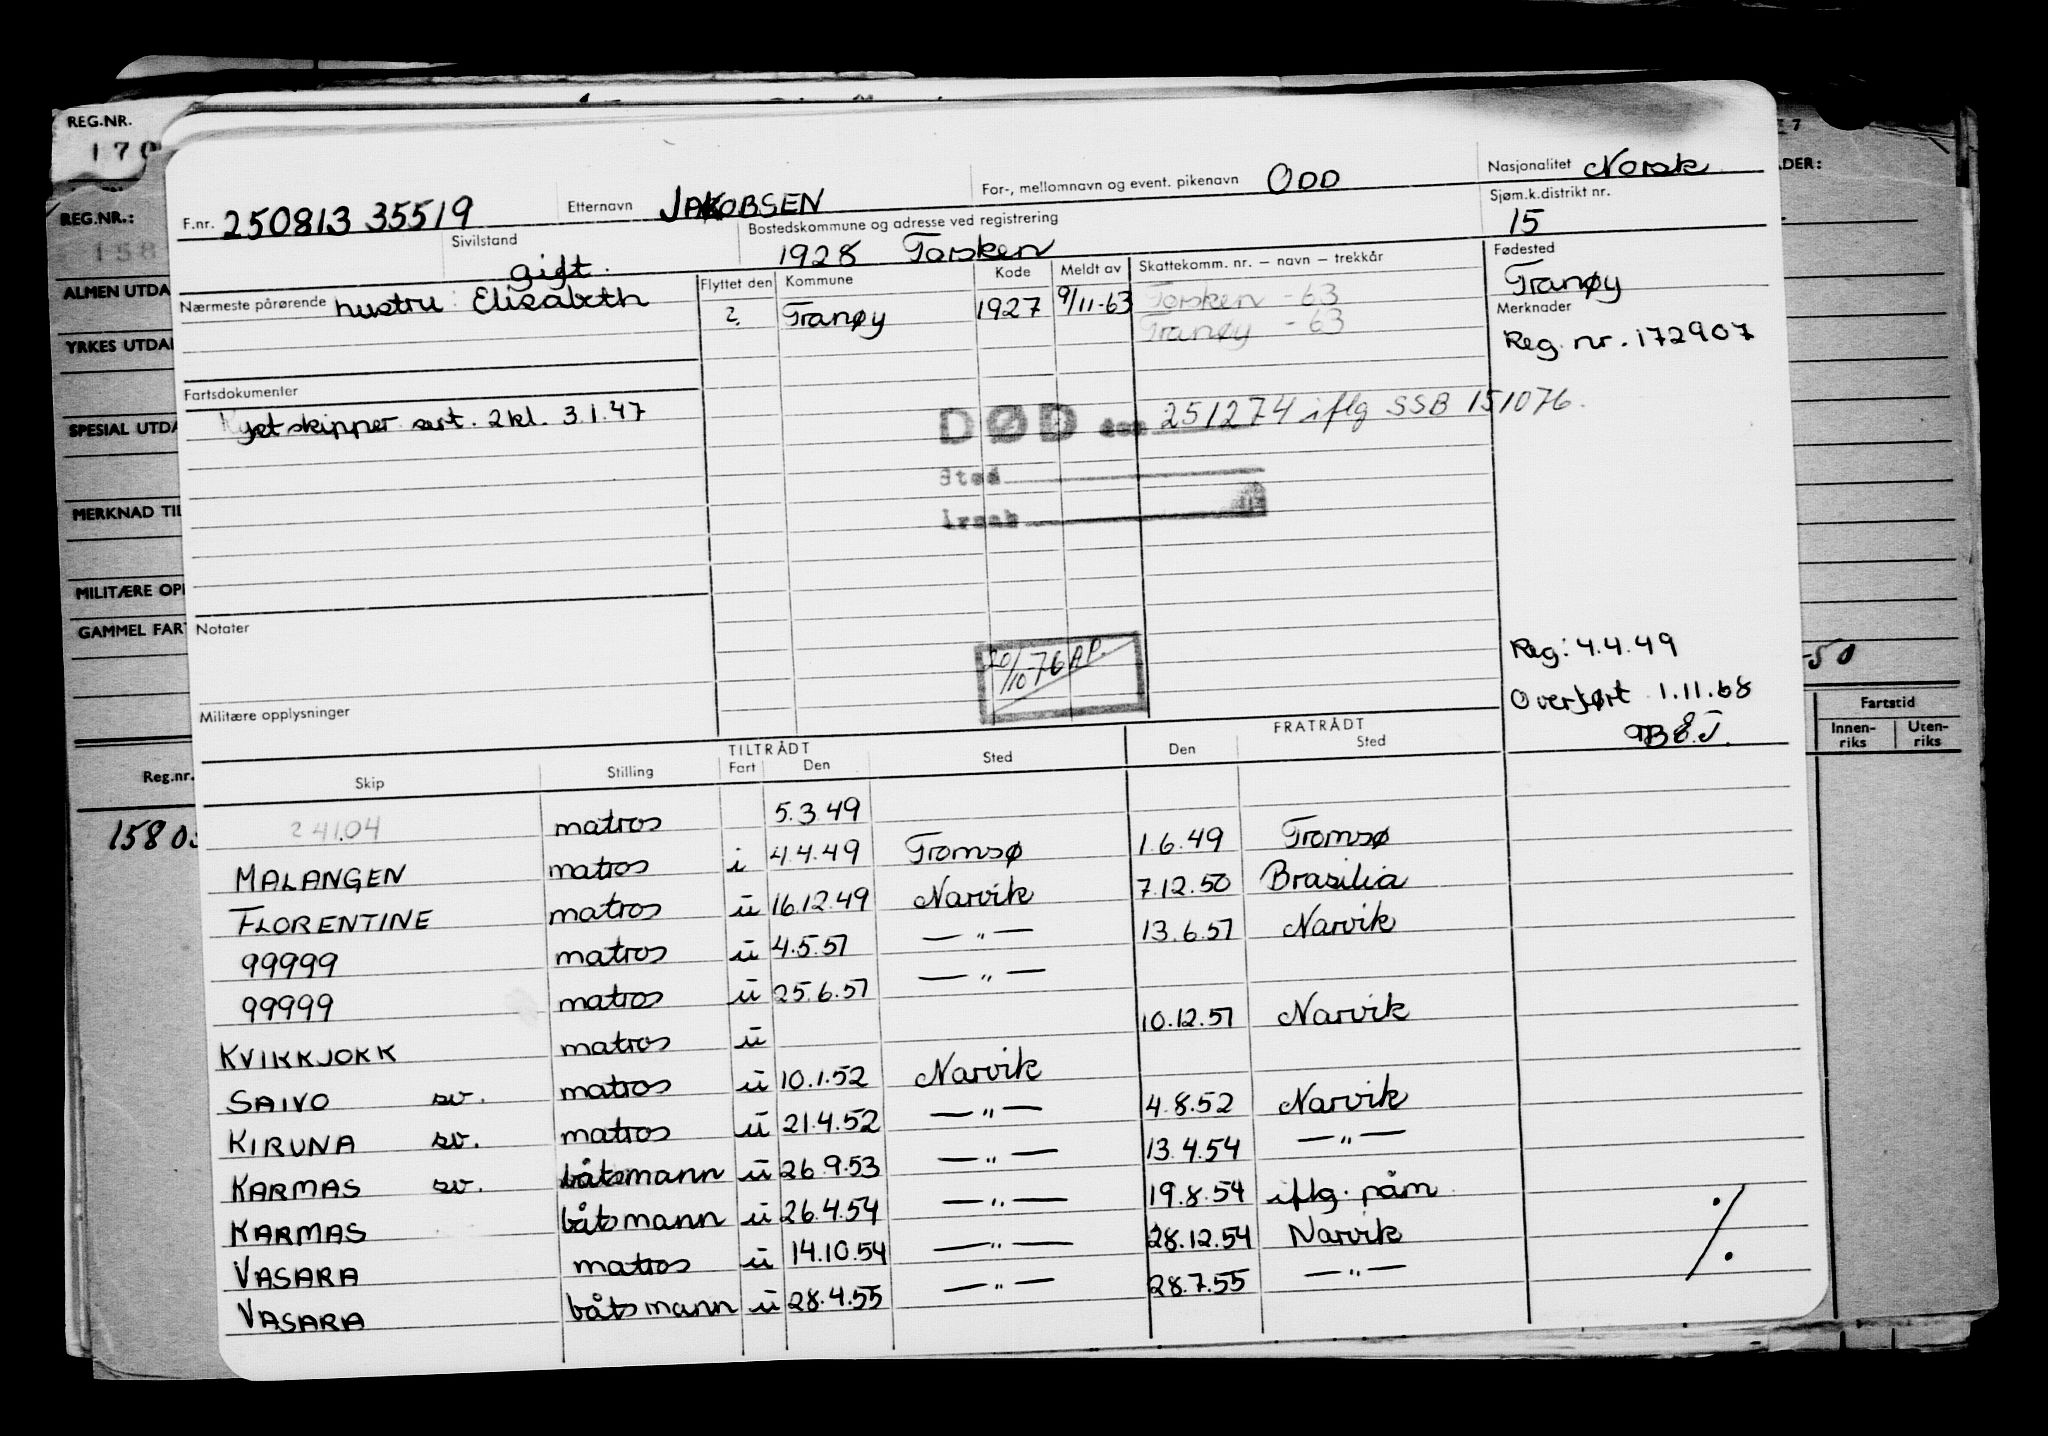 REG.NR.
170
REG.NR.:
158
ALMEN UTDA
YRKES UTDA
SPESIAL UTDA
MERKNAD TIL
MILITÆRE OPP
GAMMEL FART
Reg.nr.
15803
7
DER:
-50
Fartstid
Innen-riks Uten-riks
F.nr. 250813 35519 Etternavn JAKOBSEN For-, mellomnavn og event. pikenavn ODD Nasjonalitet Norsk
Sivilstand gift. Bostedskommune og adresse ved registrering 1928 Torsken Sjøm.k.distrikt nr. 15
Nærmeste pårørende hustru: Elisabeth Flyttet den Kommune Kode Meldt av Skattekomm. nr. – navn – trekkår Fødested Tranøy
? Tranøy 1927 9/11-63 Torsken - 63
Tranøy - 63
Merknader
Reg. nr. 172907
Fartsdokumenter
Kystskipper sert. 2 kl. 3.1.47
DØD den 251274 iflg SSB 151076.
Sted
Årsak
Notater
20/10-76 AP.
Reg: 4.4.49
Overført 1.11.68
Militære opplysninger
TILTRÅDT FRATRÅDT
Skip Stilling Fart Den Sted Den Sted
24104 matros 5.3.49
MALANGEN matros i 4.4.49 Tromsø 1.6.49 Tromsø
FLORENTINE matros u 16.12.49 Narvik 7.12.50 Brasilia
99999 matros u 4.5.51 — " — 13.6.51 Narvik
99999 matros u 25.6.51 — " —
KVIKKJOKK matros u 10.12.51 Narvik
SAIVO sv. matros u 10.1.52 Narvik
KIRUNA sv. matros u 21.4.52 — " — 4.8.52 Narvik
KARMAS sv. båtsmann u 26.9.53 — " — 13.4.54 — " —
KARMAS båtsmann u 26.4.54 — " — 19.8.54 iflg. påm
VASARA matros u 14.10.54 — " — 28.12.54 Narvik
VASARA båtsmann u 28.4.55 — " — 28.7.55 — " —
./.